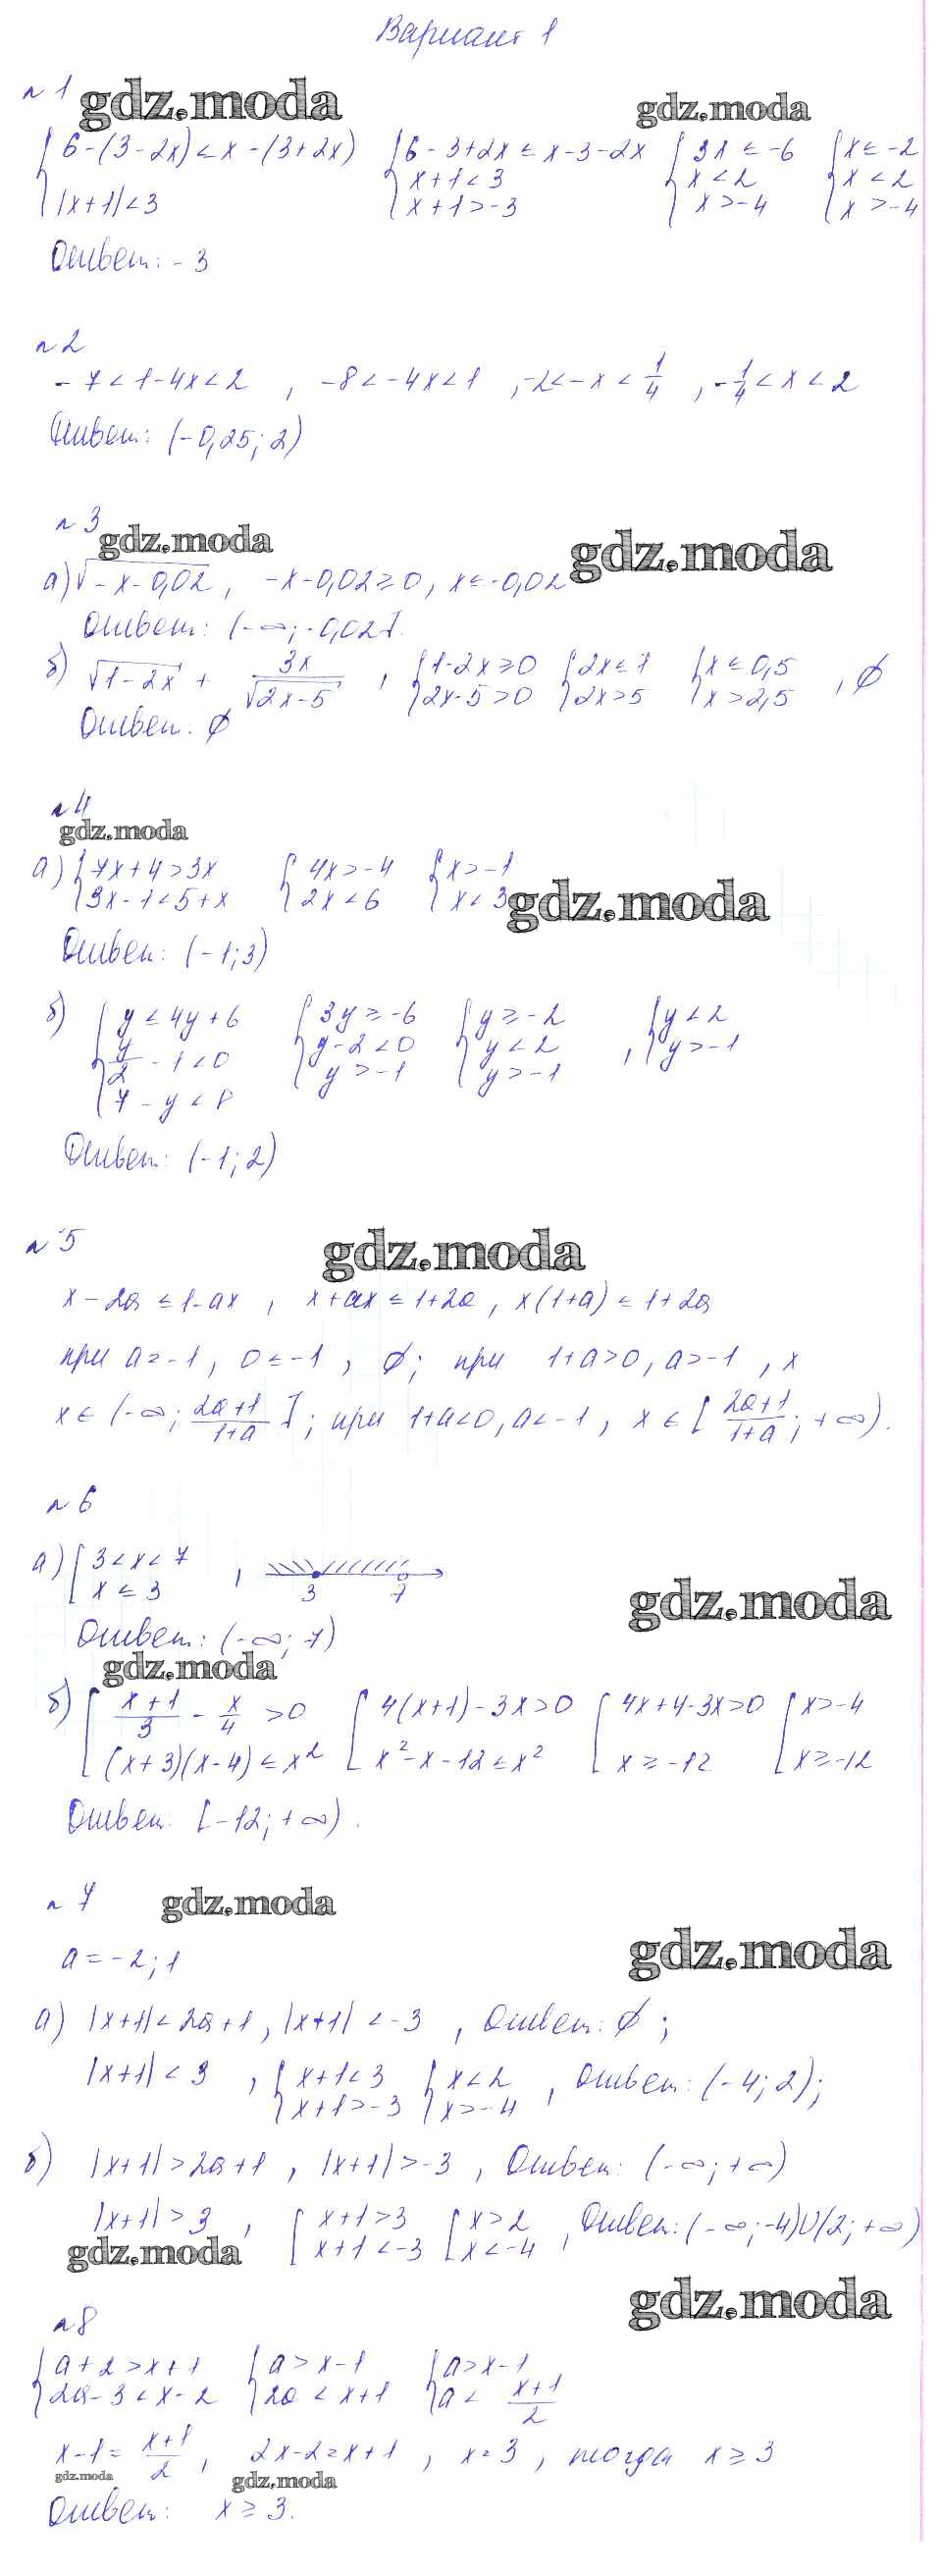 Вариант 1
№1 gdz.moda gdz.moda
{6-(3-2x)<x-(3+2x) {6-3+2x≤x-3-2x {3x≤-6 {x≤-2
{|x+1|<3 {x+1<3 {x<2 {x<2
x+1>-3 x>-4 x>-4
Ответ: -3
№2
-7<1-4x<2, -8<-4x<1, -2<-x<1/4, -1/4<x<2
Ответ: (-0,25; 2)
№3
gdz.moda gdz.moda
а) √(-x-0,02), -x-0,02≥0, x≤-0,02
Ответ: (-∞; -0,02].
б) √(1-2x) + 3x/√(2x-5), {1-2x≥0 {2x≤1 {x≤0,5
{2x-5>0 {2x>5 {x>2,5, ∅
Ответ: ∅
№4
gdz.moda
а) {7x+4>3x {4x>-4 {x>-1
{3x-1<5+x {2x<6 {x<3 gdz.moda
Ответ: (-1; 3)
б) {y≤4y+6 {3y≥-6 {y≥-2 {y<2
{y/2-1<0 {y-2<0 {y<2, {y>-1
{7-y<8 {y>-1 {y>-1
Ответ: (-1; 2)
№5 gdz.moda
x-2a≤1-ax, x+ax≤1+2a, x(1+a)≤1+2a
при a=-1, 0≤-1, ∅; при 1+a>0, a>-1, x
x∈(-∞; (2a+1)/(1+a)]; при 1+a<0, a<-1, x∈[(2a+1)/(1+a); +∞).
№6
а) [3<x<7
[x≤3, 3 7
gdz.moda
Ответ: (-∞; 7)
gdz.moda
б) [(x+1)/3 - x/4 >0 [4(x+1)-3x>0 [4x+4-3x>0 [x>-4
[(x+3)(x-4)≤x² [x²-x-12≤x² [x≥-12 [x≥-12
Ответ. [-12; +∞).
№7 gdz.moda
a=-2; 1 gdz.moda
а) |x+1|<2a+1, |x+1|<-3, Ответ: ∅;
|x+1|<3, {x+1<3 {x<2
{x+1>-3 {x>-4, Ответ: (-4; 2);
б) |x+1|>2a+1, |x+1|>-3, Ответ: (-∞; +∞)
|x+1|>3, [x+1>3 [x>2, Ответ: (-∞; -4)∪(2; +∞)
gdz.moda [x+1<-3 [x<-4
gdz.moda
№8
{a+2>x+1 {a>x-1 {a>x-1
{2a-3<x-2 {2a<x+1 {a<(x+1)/2
x-1=(x+1)/2, 2x-2=x+1, x=3, тогда x≥3
gdz.moda gdz.moda
Ответ: x≥3.